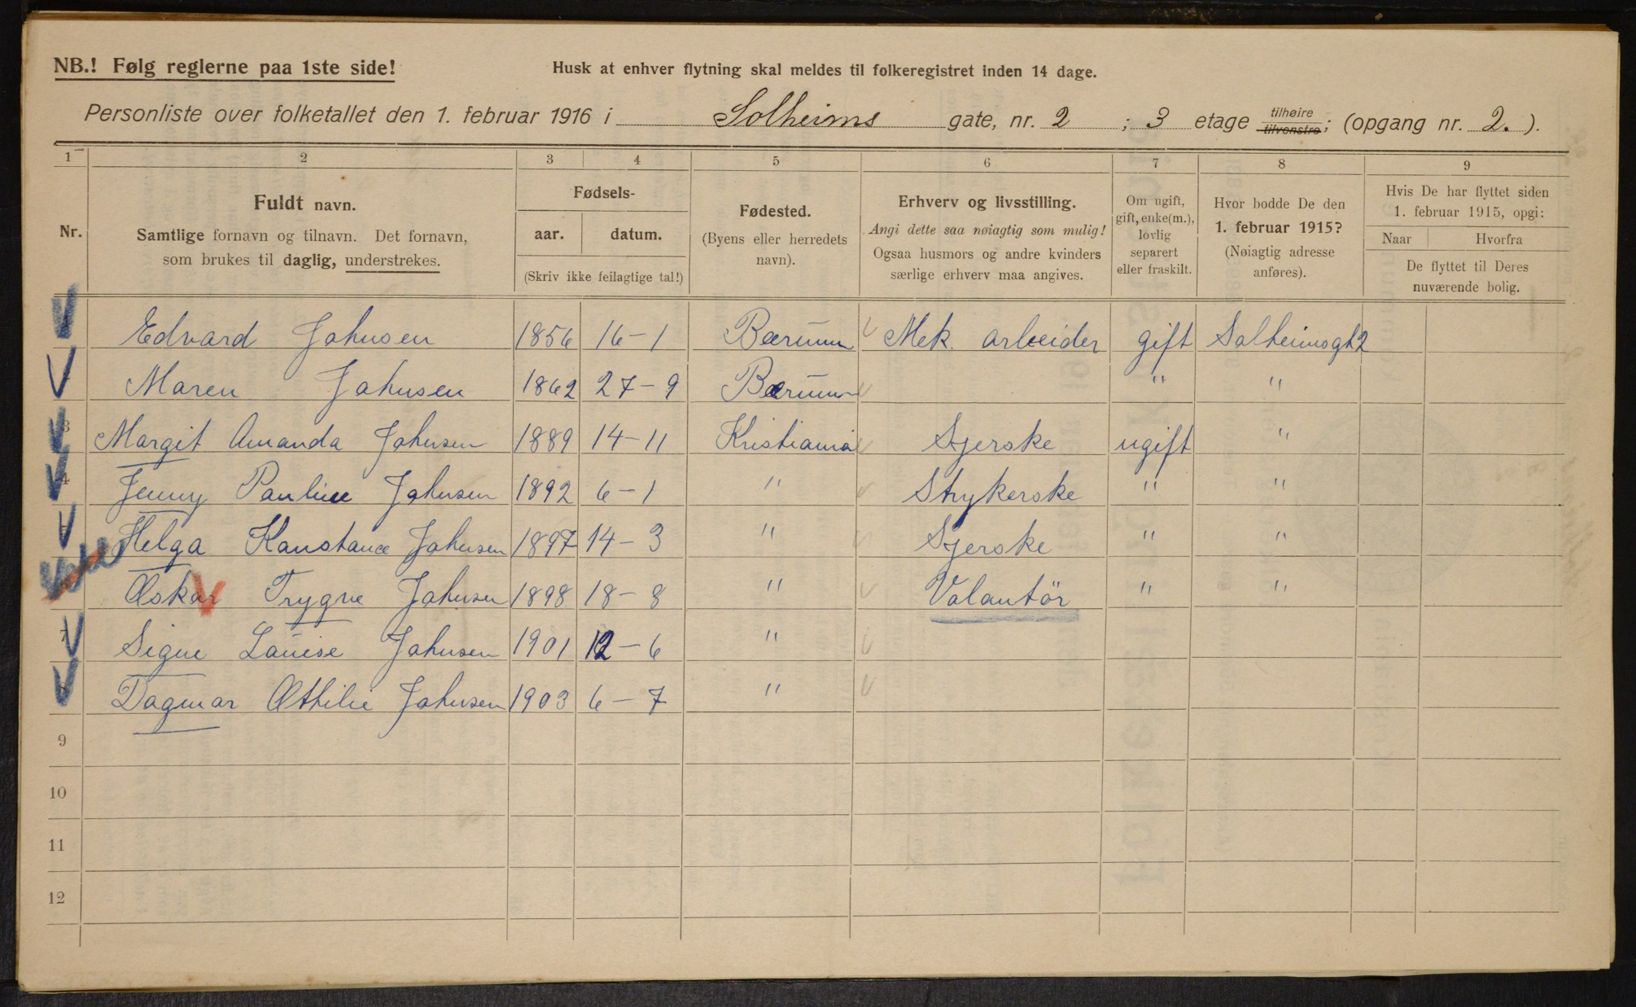 NB.! Følg reglerne paa 1ste side!
Husk at enhver flytning skal meldes til folkeregistret inden 14 dage.
Personliste over folketallet den 1. februar 1916 i Solheims gate, nr. 2 ; 3 etage tilhøire tilvenstre; (opgang nr. 2. ).
1 2 3 4 5 6 7 8 9
Nr.
Fuldt navn.
Samtlige fornavn og tilnavn. Det fornavn,
som brukes til daglig, understrekes.
Fødsels-
aar. datum.
(Skriv ikke feilagtige tal!)
Fødested.
(Byens eller herredets
navn).
Erhverv og livsstilling.
Angi dette saa nøiagtig som mulig!
Ogsaa husmors og andre kvinders
særlige erhverv maa angives.
Om ugift,
gift, enke(m.),
lovlig
separert
eller fraskilt.
Hvor bodde De den
1. februar 1915?
(Nøiagtig adresse
anføres).
Hvis De har flyttet siden
1. februar 1915, opgi:
Naar Hvorfra
De flyttet til Deres
nuværende bolig.
Edvard Johnsen 1856 16-1 Bærum Mek. arbeider gift Solheimsgt 2
Maren Johnsen 1862 27-9 Bærum " "
3 Margit Amanda Johnsen 1889 14-11 Kristiania Syerske ugift "
4 Jenny Pauline Johnsen 1892 6-1 " Strykerske " "
Helga Konstance Johnsen 1897 14-3 " Syerske " "
Oskar Trygve Johnsen 1898 18-8 " Volantör " "
7 Signe Louise Johnsen 1901 12-6 "
Dagmar Othilie Johnsen 1903 6-7 "
9
10
11
12